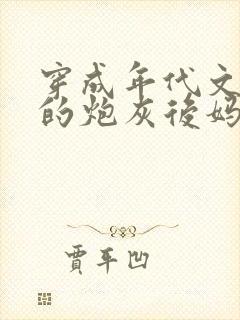 穿成年代文
的炮灰後妈
賈平凹